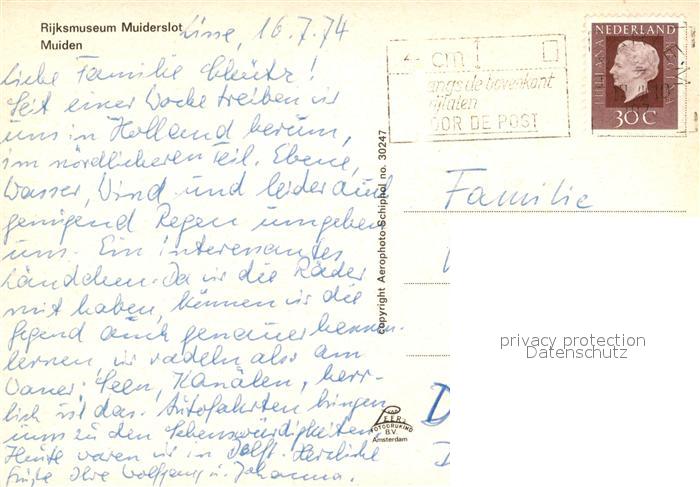 Rijksmuseum Muiderslot
Muiden
Lisse, 16.7.74
Liebe Familie
Seit einer Woche treiben wir
uns in Holland herum,
im nördlicheren Teil. Ebene,
Wasser, Wind und leider auch
genügend Regen umgeben
uns. Ein interessantes
Ländchen. Da wir die Räder
mit haben, können wir die
Gegend auch genauer kennen-
lernen, wir radeln also am
Seen, Kanälen, herr-
lich ist das. Autofahrten bringen
uns zu den Sehenswürdigkeiten.
Heute waren wir in Delft. Herzliche
Grüße Ihre Wolfgang u. Johanna.
copyright Aerophoto-Schiphol no. 30247
4 cm
langs de bovenkant
vrijlaten
VOOR DE POST
NEDERLAND
JULIANA
REGINA
30 C
Familie
D
privacy protection
Datenschutz
VAN
LEER'S
FOTODRUKIND
B.V.
Amsterdam